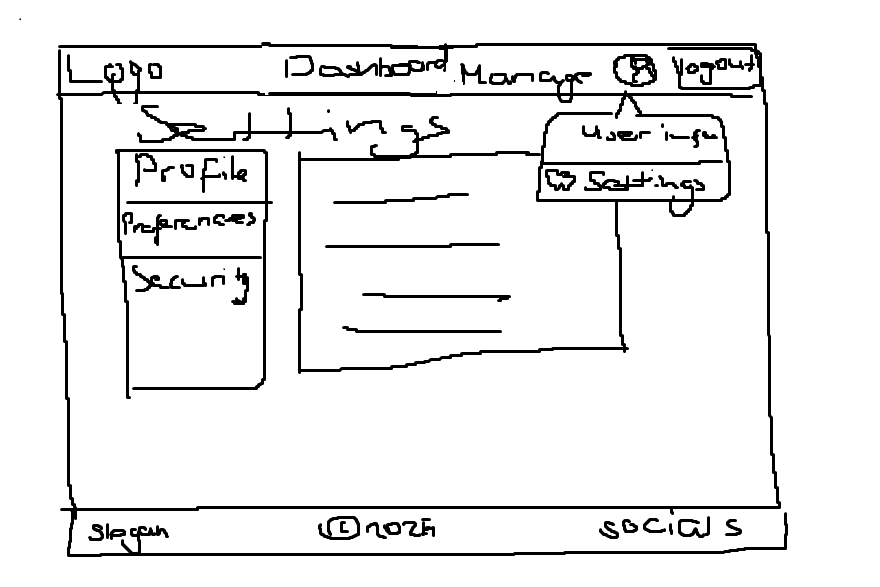 Logo Dashboard Manage logout
Settings
User info
Settings
Profile
Preferences
Security
Slogan © 2025 SOCIALS